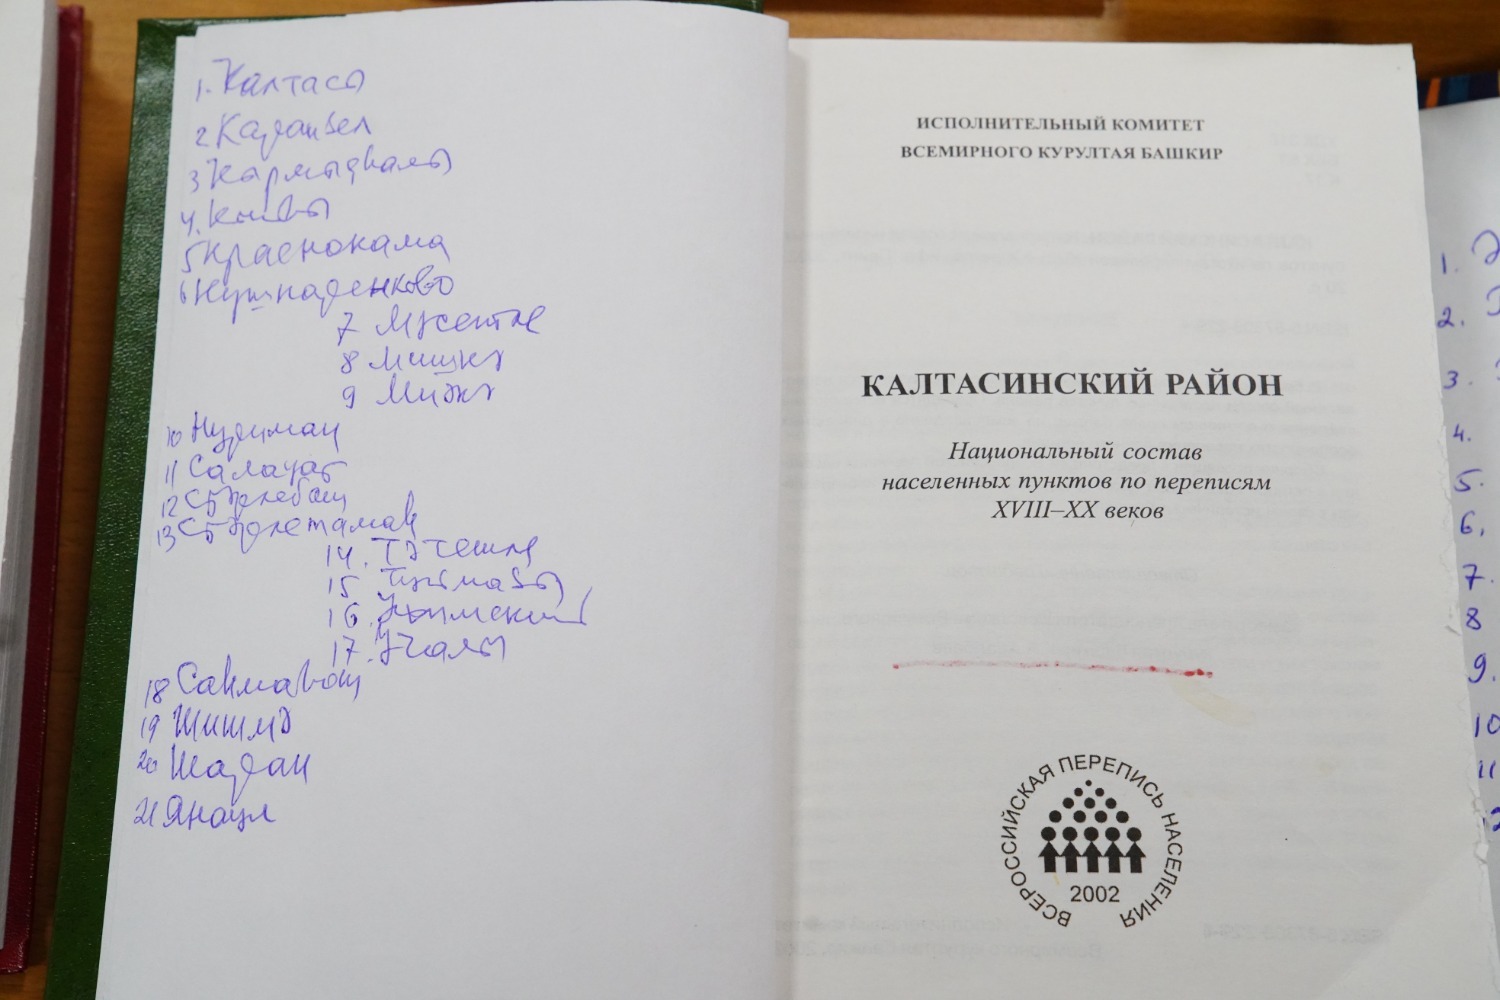 1. Калтасы
2 Караидел
3 Кармаскалы
4. Кигы
5 Краснокама
6 Кушнаренково
7 Мелеуз
8 Мишкә
9 Миәкә
10 Нуриман
11 Салауат
12 Стәрлебаш
13 Стәрлетамак
14. Тәтешле
15 Туймазы
16. Уфимский
17. Учалы
18
19 Шишмә
20 Шаран
21 Янаул
ИСПОЛНИТЕЛЬНЫЙ КОМИТЕТ
ВСЕМИРНОГО КУРУЛТАЯ БАШКИР
КАЛТАСИНСКИЙ РАЙОН
Национальный состав
населенных пунктов по переписям
XVIII–XX веков
ВСЕРОССИЙСКАЯ ПЕРЕПИСЬ НАСЕЛЕНИЯ
2002
1.
2.
3.
4.
5.
6.
7.
8
9.
10
11
12